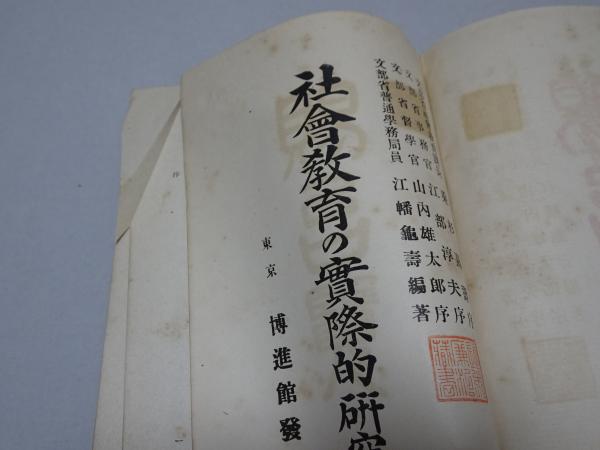 文部省事務官 江部淳夫序
文部省督學官 山内雄太郎序
文部省普通學務局員 江幡龜壽編著
社會教育の實際的研究
東京 博進館發